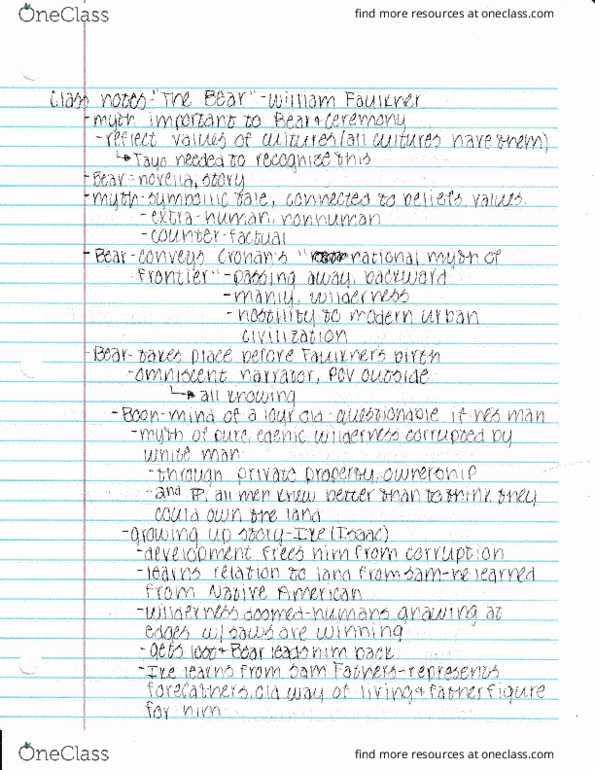 OneClass find more resources at oneclass.com
Class notes-"The Bear"-William Faulkner
-myth important to Bear+ceremony
-reflect values of cultures(all cultures have them)
↳Tayo needed to recognize this
-Bear-novella, story
-myth-symbolic tale, connected to beliefs, values.
-extra-human, nonhuman
-counter-factual
-Bear-conveys Cronan's "national myth of
frontier"-passing away, backward
-manly, wilderness
-hostility to modern urban
civilization
-Bear-takes place before Faulkner's birth
-omniscent narrator, POV outside
↳all knowing
-Boon-mind of a 10yr old-questionable if hes man
-myth of pure, edenic wilderness corrupted by
white man
-through private property, ownership
-and IP, all men knew better than to think they
could own the land
-growing up story-Ike(Isaac)
-development frees him from corruption
-learns relation to land from Sam-he learned
from Native American
-wilderness doomed-humans gnawing at
edges w/ saws are winning
-gets lost+Bear leads him back
-Ike learns from Sam Fathers-represents
forefathers, old way of living+father figure
for him
OneClass find more resources at oneclass.com